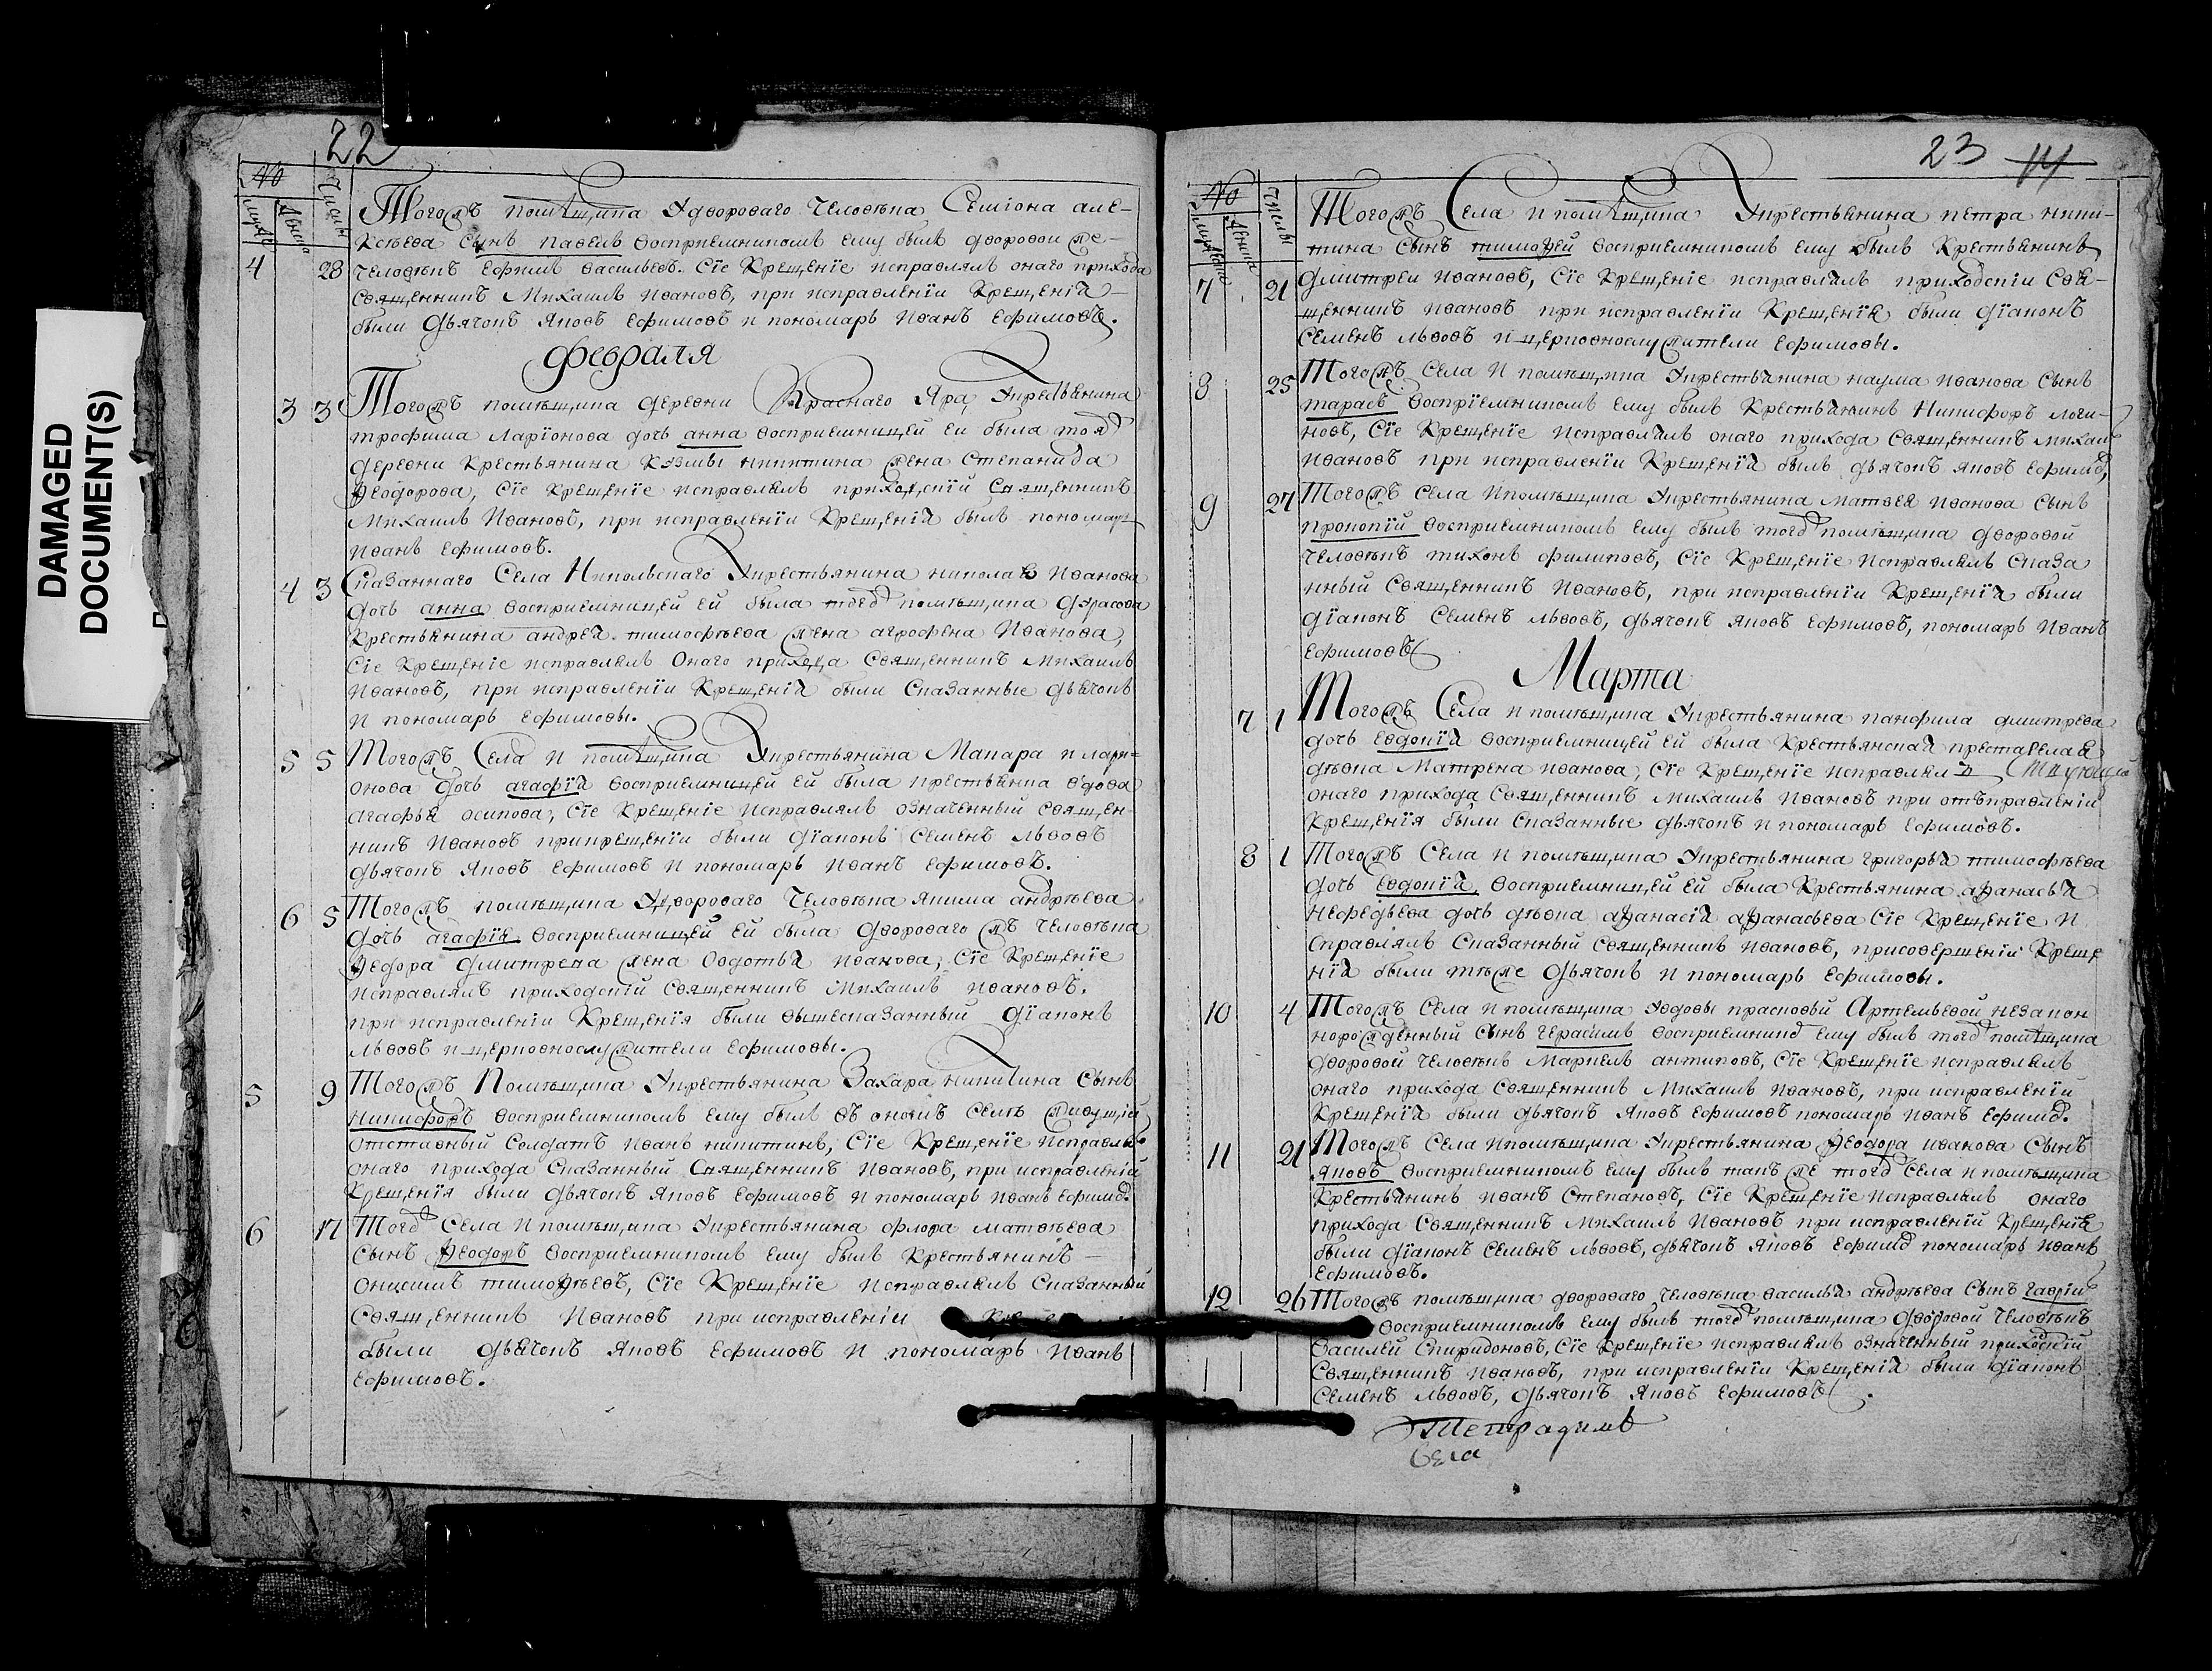 DAMAGED
DOCUMENT(S)
22
№
Мужеск
Женска
Числы
Тогожъ помѣщика Удвороваго Человѣка Семіона але-
ксѣева сынъ павелъ восприемникомъ ему былъ дворовои же-
4 28 человѣкъ ефимъ васильевъ. Сїе Крещенїе исправлялъ онаго прихода
Священникъ Михаилъ Ивановъ, при исправленїи Крещенія
были дьячокъ Яковъ Ефимовъ и пономарь Иванъ Ефимовъ.
Февраля
3 3 Тогожъ помѣщика деревни Краснаго Яра, Укрестьянина
трофима Ларїонова дочь анна восприемницей ей была тояжъ
деревни Крестьянина Козмы никитина жена Степанида
Ѳеодорова, Сїе Крещенїе исправлялъ приходскій Священникъ
Михаилъ Ивановъ, при исправленїи Крещенія былъ пономарь
Иванъ Ефимовъ.
4 3 Сказаннаго Села Никольскаго Укрестьянина николая Иванова
дочь анна восприемницей ей была тогожъ помѣщика
Крестьянина андрея тимофѣева жена агрофена Иванова,
Сїе Крещенїе исправлялъ Онаго прихода Священникъ Михаилъ
Ивановъ, при исправленїи Крещенія были Сказанные дьячокъ
И пономарь Ефимовы.
5 5 Тогожъ Села И помѣщика Укрестьянина Макара иларі-
онова дочь агафія восприемницей ей была крестьянка вдова
Агафья осипова, Сїе Крещенїе исправлялъ означенный Священ-
никъ Ивановъ прикрещенїи были дїаконъ Семенъ Львовъ
дьячокъ Яковъ Ефимовъ И пономарь Иванъ Ефимовъ.
6 5 Тогожъ помѣщика Удвороваго Человѣка якима андрѣева
дочь агафїя восприемницей ей была двороваго жъ человѣка
Ѳедора дмитрева жена Овдотья Иванова, Сїе Крещенїе
исправлялъ приходскій Священникъ Михаилъ Ивановъ.
при исправленїи Крещенїя были вышесказанный дїаконъ
львовъ и церковнослужители Ефимовы.
5 9 Тогожъ Помѣщика Укрестьянина Захара никитина Сынъ
никифоръ восприемникомъ ему былъ въ ономъ Селѣ живущій
отставный Солдатъ Иванъ никитинъ, Сїе Крещенїе исправлялъ
онаго прихода Сказанный Священникъ Ивановъ, при исправленїи
Крещенїя были дьячокъ Яковъ Ефимовъ И пономарь Иванъ Ефимовъ.
6 17 Тогожъ Села И помѣщика Укрестьянина флора матвѣева
Сынъ Ѳеодоръ восприемникомъ ему былъ Крестьянинъ
Онисимъ тимоѳѣевъ, Сїе Крещенїе исправлялъ Сказанный
Священникъ Ивановъ при исправленїи
были дьячокъ Яковъ Ефимовъ И пономарь Иванъ
Ефимовъ.
23 14
№
Мужеска
Женска
Числы
Тогожъ Села И помѣщика Укрестьянина петра ники-
тина Сынъ тимоѳей восприемникомъ ему былъ Крестьянинъ
7 21 Дмитреи Ивановъ, Сїе Крещенїе исправлялъ приходскіи Свя-
щенникъ Ивановъ при исправленїи Крещенїя были дїаконъ
Семенъ Львовъ и церковнослужители Ефимовы.
8 25 Тогожъ Села И помѣщика Укрестьянина наума Иванова Сынъ
тарасъ восприемникомъ ему былъ Крестьянинъ Никифоръ логи-
новъ, Сїе Крещенїе исправлялъ онаго прихода Священникъ Михаилъ
Ивановъ при исправленїи Крещенія былъ дьячокъ яковъ ефимовъ,
9 27 Тогожъ Села И помѣщика Укрестьянина Матвея Иванова Сынъ
прокопій восприемникомъ ему былъ тогожъ помѣщика дворовой
человѣкъ тихонъ филиповъ, Сїе Крещенїе исправлялъ Сказа
нный Священникъ Ивановъ, при исправленїи Крещенїя были
дїаконъ Семенъ львовъ, дьячокъ яковъ Ефимовъ, пономарь Иванъ
Ефимовъ
Марта
7 1 Тогожъ Села И помѣщика Укрестьянина панфила дмитрева
дочь Евдокія восприемницей ей была Крестьянская престарелая
дѣвка Матрена Иванова, Сїе Крещенїе исправлялъ
онаго прихода Священникъ Михаилъ Ивановъ при отъправленїи
Крещенїя были Сказанные дьячокъ И пономарь Ефимовъ.
8 1 Тогожъ Села И помѣщика Укрестьянина григорья тимофѣева
дочь Евдокїя восприемницей ей была Крестьянина аѳанасья
нефедьева дочь дѣвка аѳанасія аѳанасьева Сїе Крещенїе И
справлялъ Сказанный Священникъ Ивановъ, присовершеніи Креще
нія были тѣже Дьячокъ И пономарь Ефимовы.
10 4 Тогожъ Села И помѣщика Увдовы прасковьи Артемьевой незакон
норожденный Сынъ герасимъ восприемникъ ему былъ тогожъ помѣщика
дворовой человѣкъ Маркелъ антиповъ, Сїе Крещенїе исправлялъ
онаго прихода Священникъ Михаилъ Ивановъ, при исправленїи
Крещенїя были дьячокъ Яковъ Ефимовъ пономарь Иванъ Ефимовъ.
11 21 Тогожъ Села И помѣщика Укрестьянина Ѳеодора иванова Сынъ
Яковъ восприемникомъ ему былъ такъ же тогожъ Села и помѣщика
Крестьянинъ Иванъ Степановъ, Сїе Крещенїе исправлялъ онаго
прихода Священникъ Михаилъ Ивановъ при исправленїи Крещенїя
были дїаконъ Семенъ Львовъ, дьячокъ Яковъ Ефимовъ пономарь Иванъ
Ефимовъ.
12 26 Тогожъ помѣщика двороваго человѣка василья андрѣева Сынъ гаврїилъ
восприемникомъ ему былъ тогожъ помѣщика дворовой человѣкъ
Василей Спиридоновъ, Сїе Крещенїе исправлялъ означенный приходскій
Священникъ Ивановъ, при исправленїи Крещенїя были дїаконъ
Семенъ Львовъ, Дьячокъ Яковъ Ефимовъ.
Села